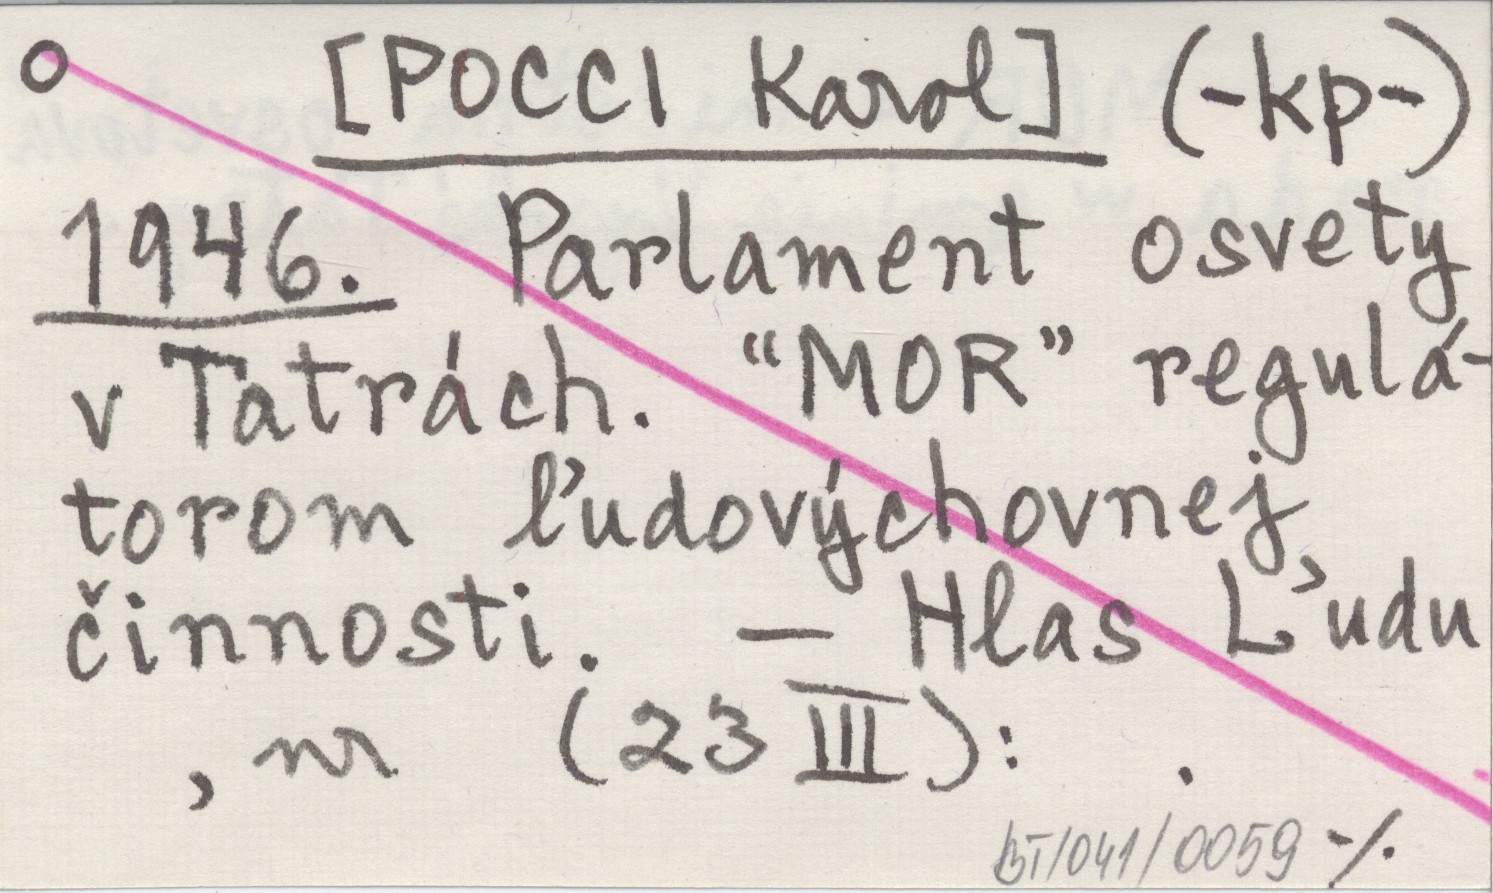 [POCCI Karol] (-kp-)
1946. Parlament osvety
v Tatrách. “MOR” regulá-
torom ľudovýchovnej
činnosti. — Hlas Ľudu
, nr (23 III): .
BT/041/0059 -/.